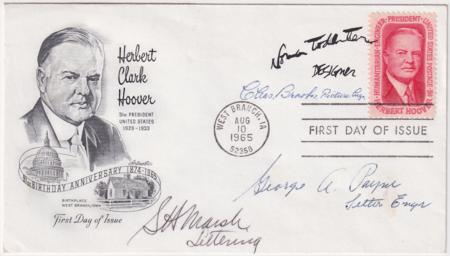 Herbert
Clark
Hoover
31st PRESIDENT
UNITED STATES
1929 - 1933
BIRTHDAY ANNIVERSARY 1874-1965
BIRTHPLACE
WEST BRANCH, IOWA
First Day of Issue
Norman Todhunter
DESIGNER
Chas. Brooks Picture Engr.
WEST BRANCH, IA
AUG
10
1965
52358
FIRST DAY OF ISSUE
HUMANITARIAN · ENGINEER · PRESIDENT · UNITED STATES POSTAGE 5¢
HERBERT HOOV
George A. Payne
Letter Engr
S H Marsh
Lettering